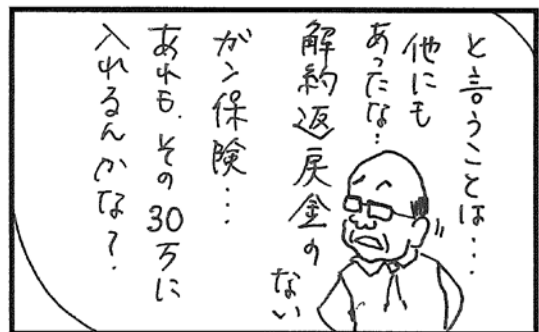 と言うことは…
他にも
あったな…
解約返戻金の
ない
ガン保険…
あれも、その30万に
入れるんかな？